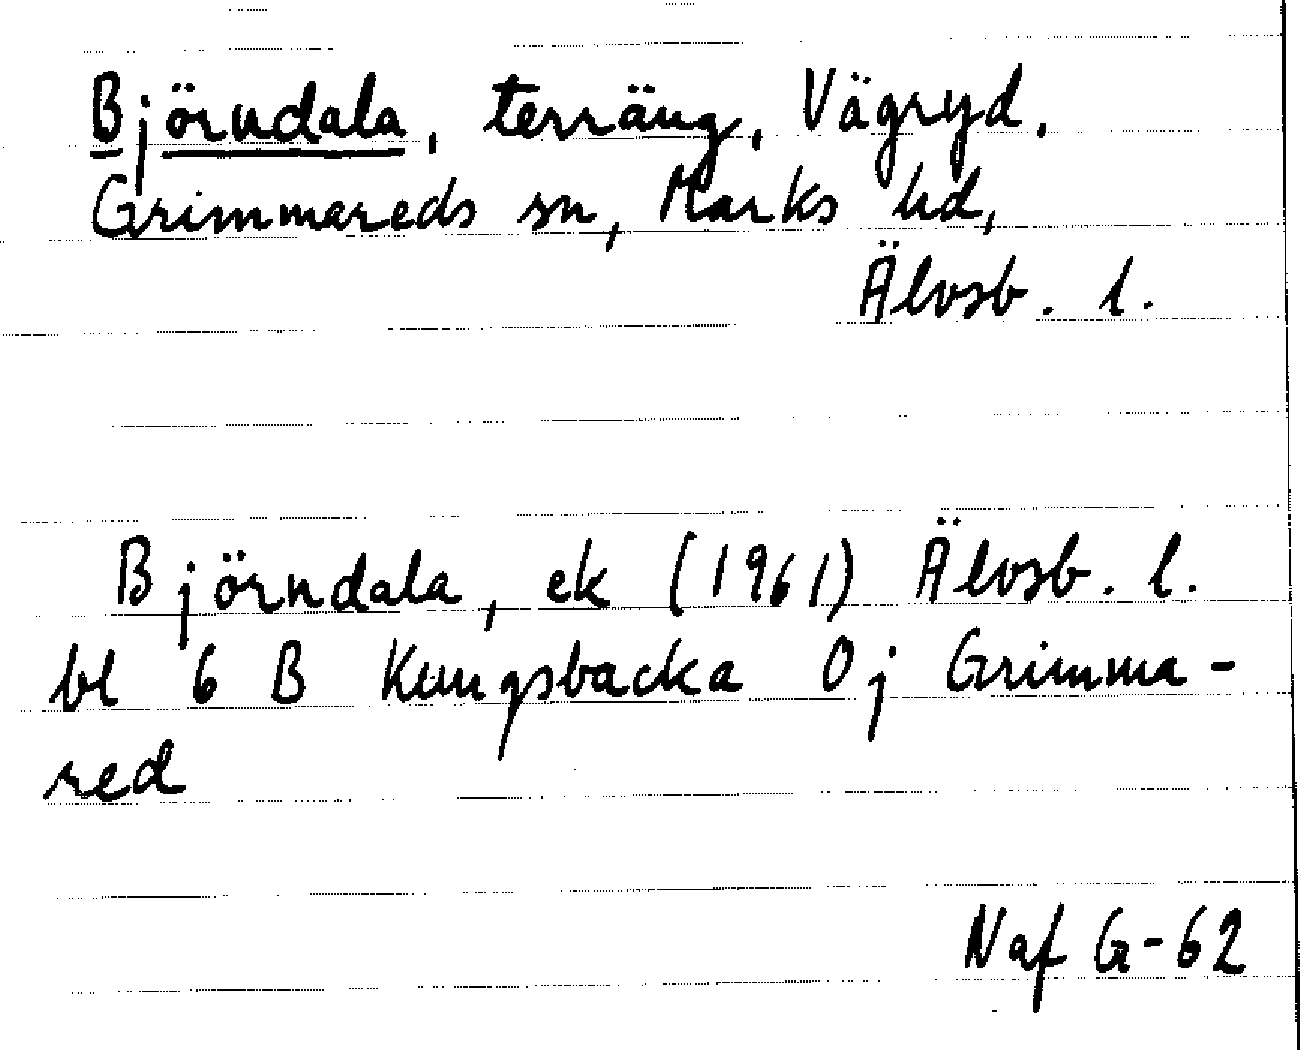 Björndala, terräng, Vägryd,
Grimmareds sn, Marks hd,
Älvsb. l.
Björndala, ek (1961) Älvsb. l.
bl 6 B Kungsbacka 0j Grimma-
red
Naf G-62